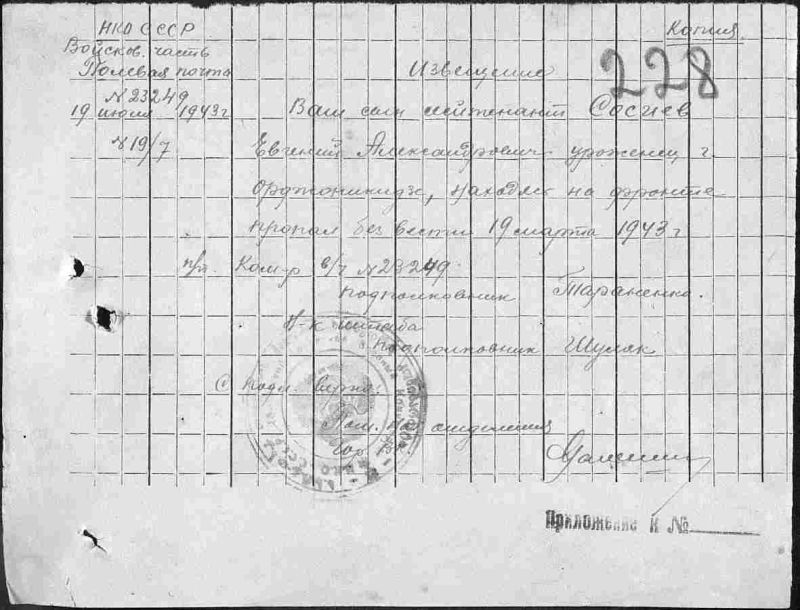 НКО СССР
Войсков. часть
Полевая почта
№ 23249
19 июля 1943 г
№ 19/7
Копия
228
Извещение
Ваш сын лейтенант Сосиев
Евгений Александрович уроженец г.
Орджоникидзе, находясь на фронте
пропал без вести 19 марта 1943 г
п/п. Ком-р в/ч № 23249
подполковник Тараненко.
Н-к штаба
подполковник Шуляк
С подл. верно:
Пом. нач отделения
Приложение к №